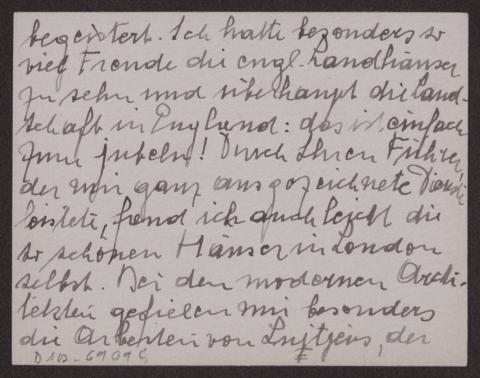 begeistert. Ich hatte bezonders so
viel Freude die engl. Landhäuser
zu sehn und überhaupt die Land-
schaft in England: das ist einfach
zum jubeln! Durch Ihren Führer,
der mir ganz ausgezeichnete Dienste
leistete, fand ich auch leicht die
so schönen Häuser in London
selbst. Bei den modernen Archi-
tekten gefielen mir besonders
die Arbeiten von Lujtjens, der
D102-6969 C